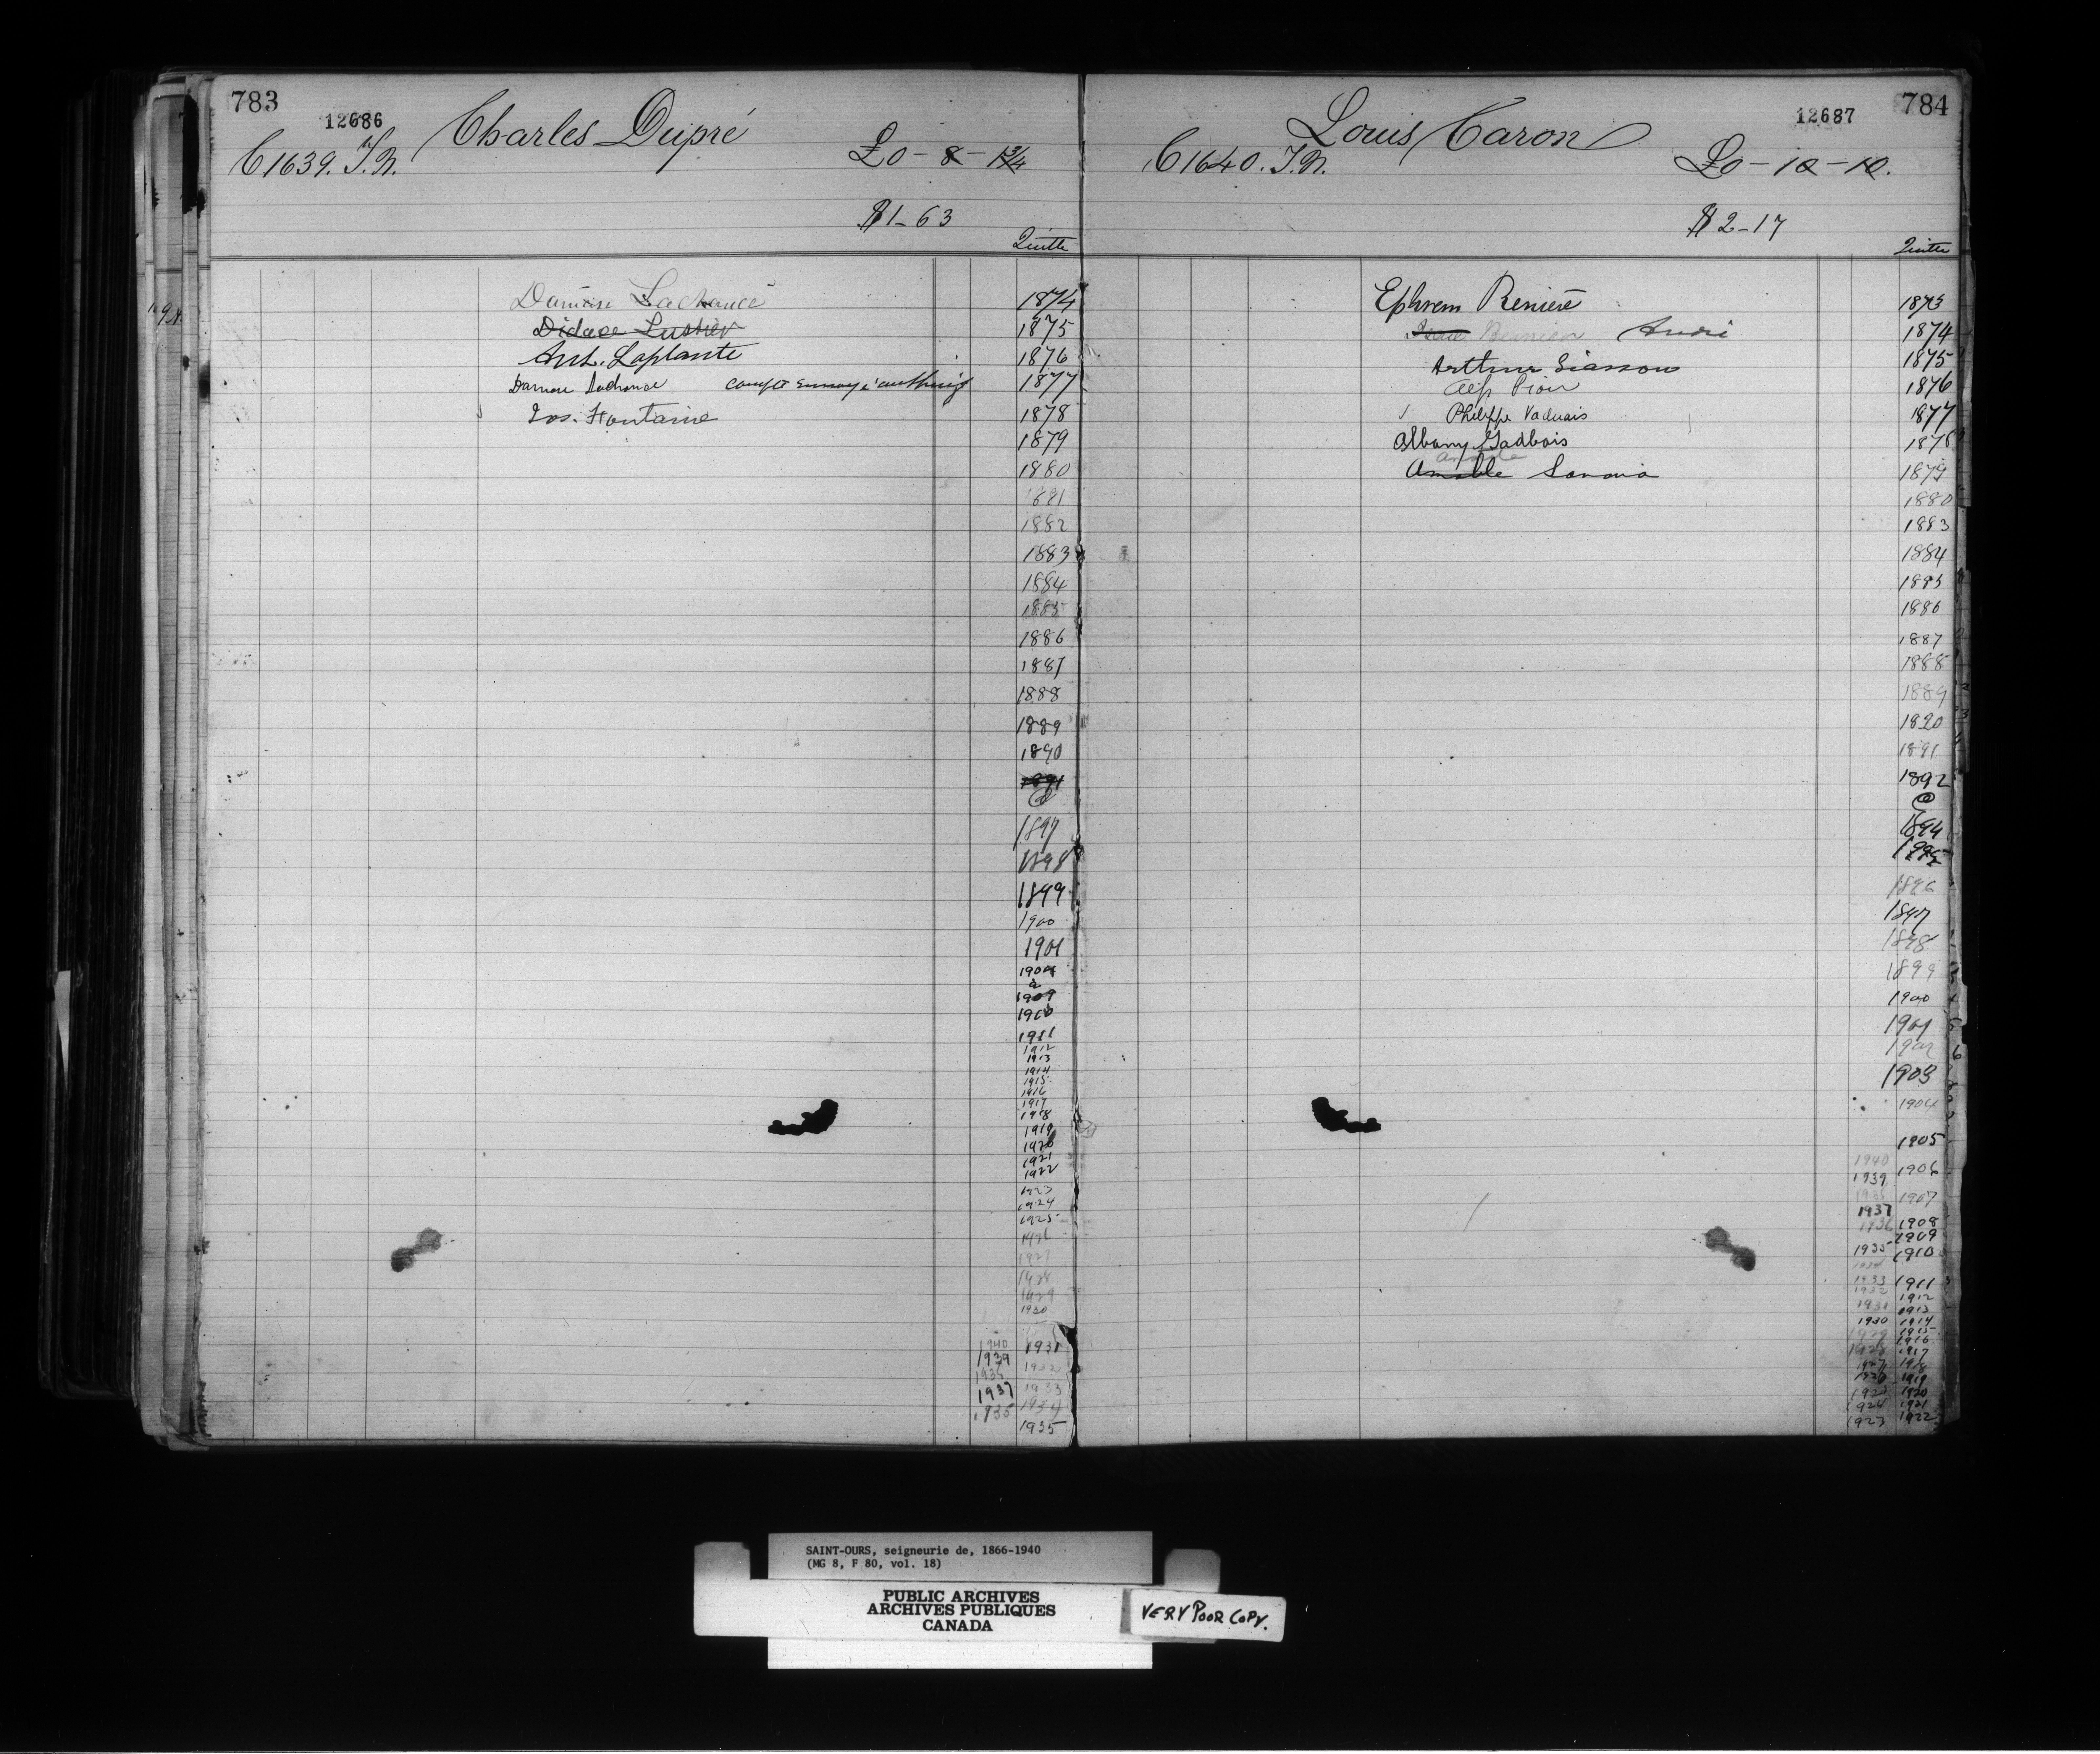 783
12686
Charles Dupré
C1639. T.N.
£0-8-1¾
$1-63
Quitte
Damase Lachance 1874
Didace Lussier 1875
Ant. Laplante 1876
Damase Lachance 1877
Jos. Fontaine 1878
1879
1880
1881
1882
1883
1884
1885
1886
1887
1888
1889
1890
1891
@
1897
1898
1899
1900
1901
1909
1910
1911
1912
1913
1914
1915
1916
1917
1918
1919
1920
1921
1922
1923
1924
1925
1926
1927
1928
1929
1930
1940 1931
1939 1932
1937 1933
1935 1934
1935
784
12687
Louis Caron
C1640. T.N.
£0-10-10.
$2-17
Quitte
Ephrem Renière 1873
André 1874
Arthur Siasson 1875
1876
Philippe Vadnais 1877
Albany Gadbois 1878
Amable 1879
1880
1883
1884
1885
1886
1887
1888
1889
1890
1891
1892
@
1894
1895
1896
1897
1898
1899
1900
1901
1902
1903
1904
1905
1940 1906
1939
1907
1937
1936 1908
1909
1935 1910
1933 1911
1932 1912
1931 1913
1930 1914
1929 1915
1916
1928 1917
1927 1918
1926 1919
1925 1920
1924 1921
1923 1922
SAINT-OURS, seigneurie de, 1866-1940
(MG 8, F 80, vol. 18)
PUBLIC ARCHIVES
ARCHIVES PUBLIQUES
CANADA
VERY POOR COPY.